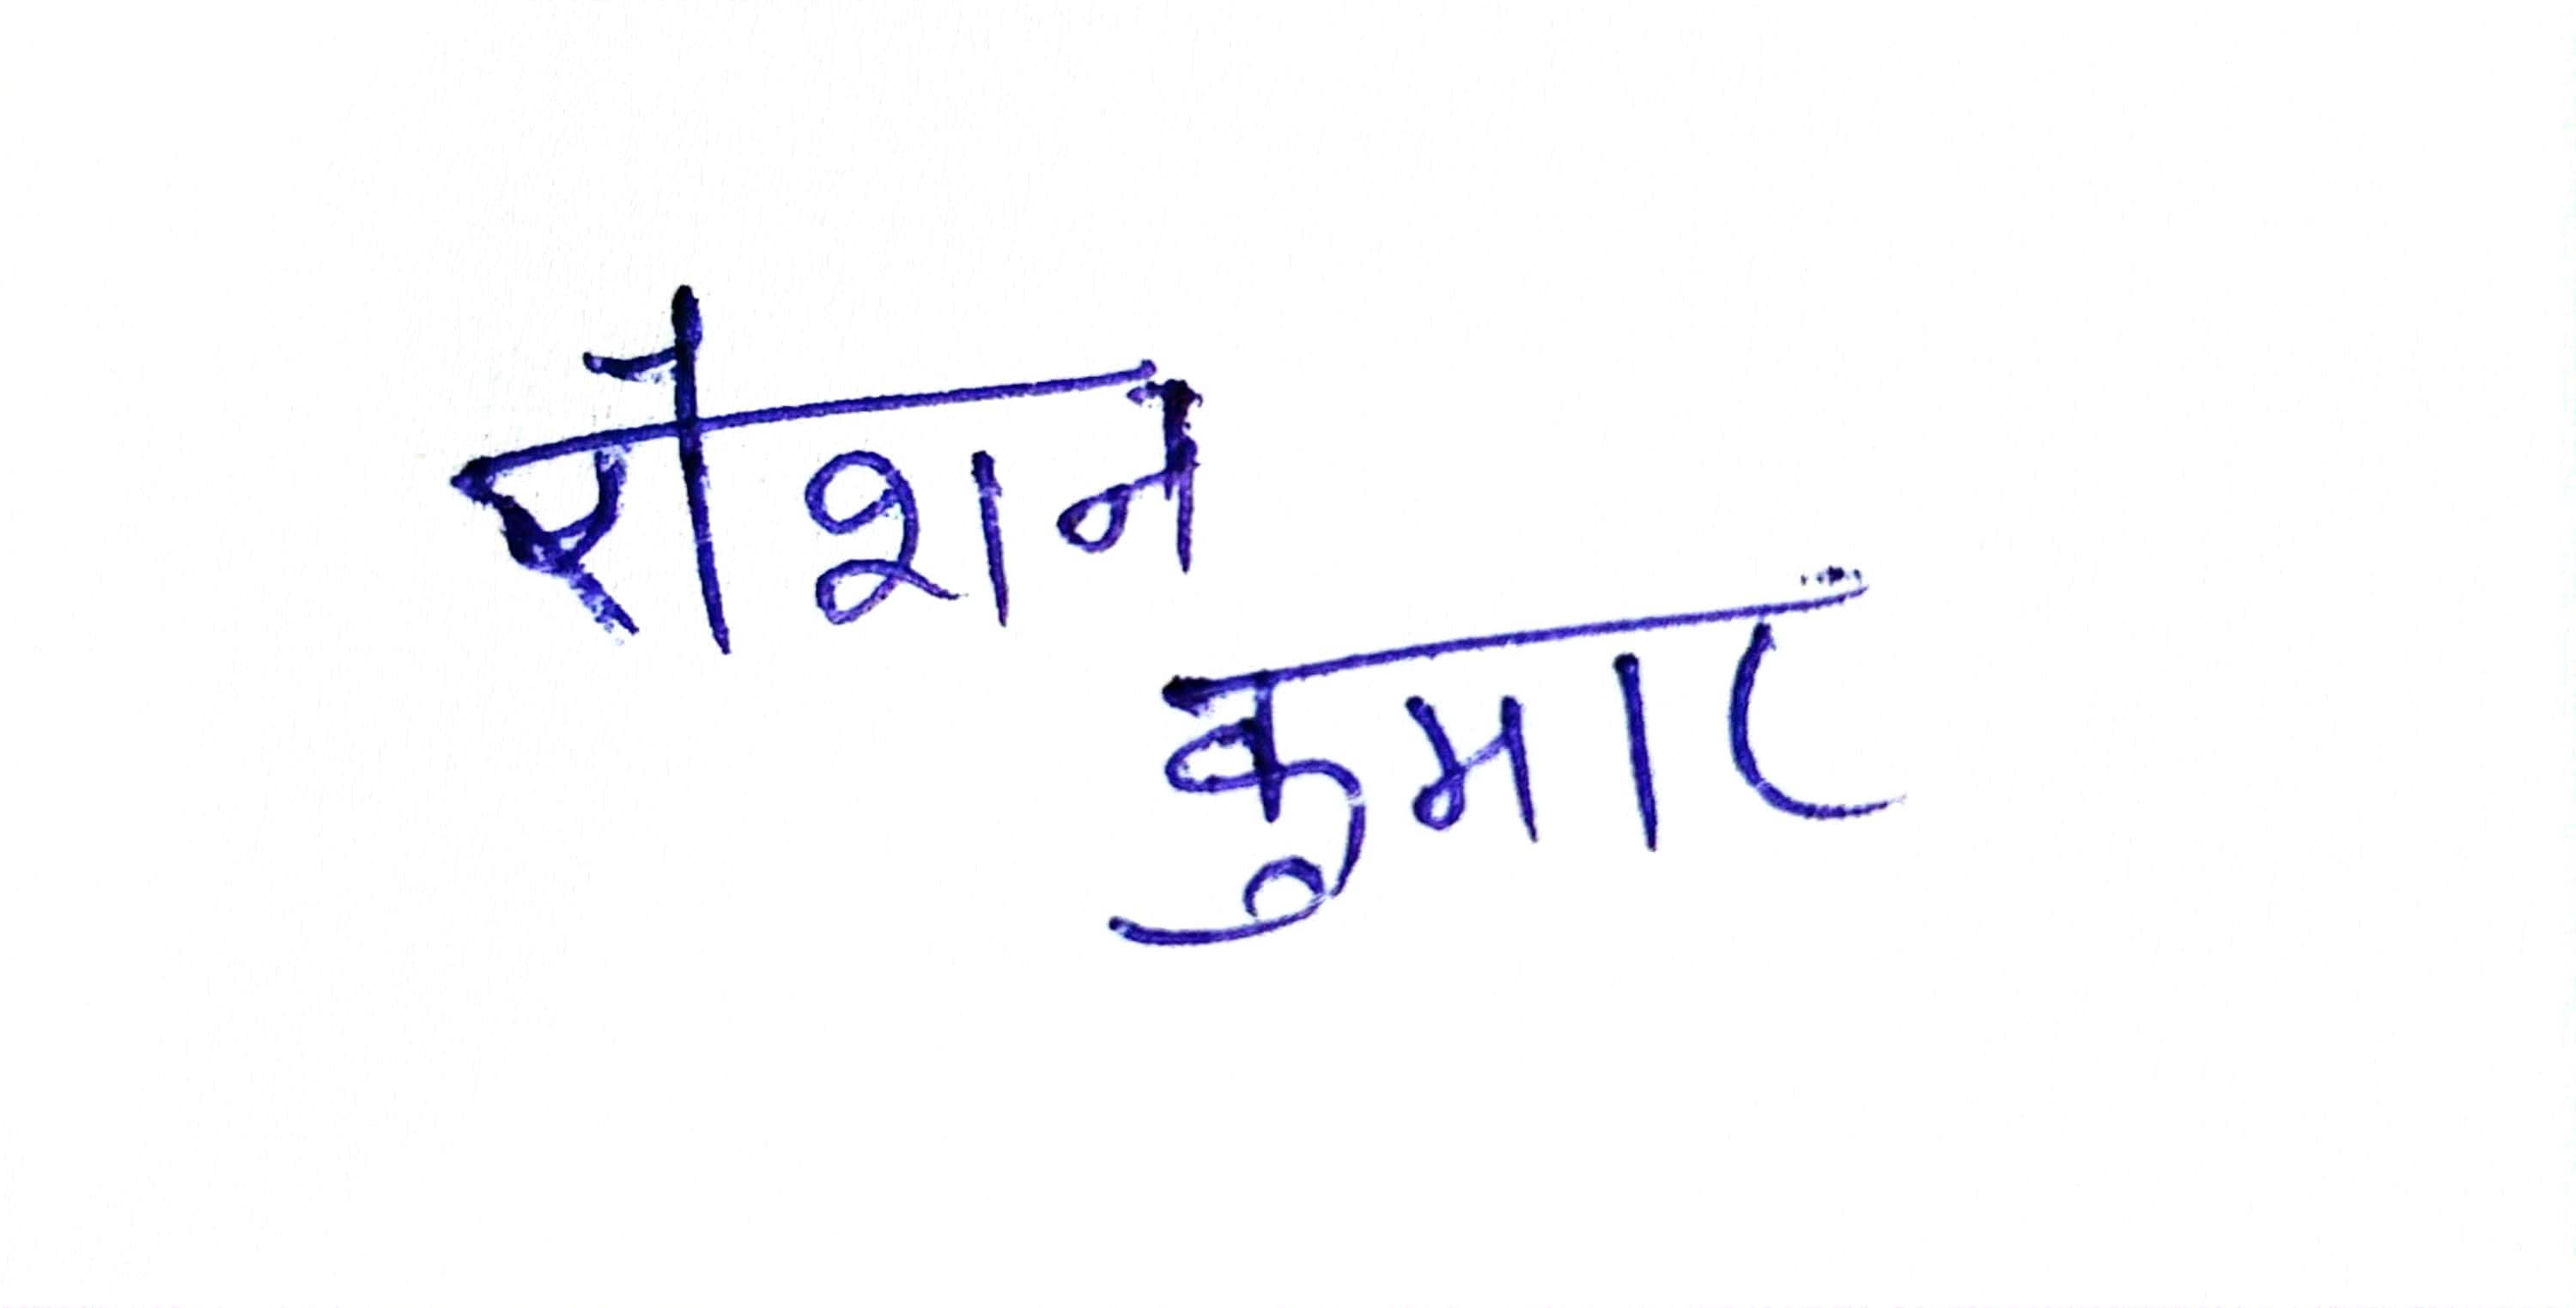 रोशन
कुमार